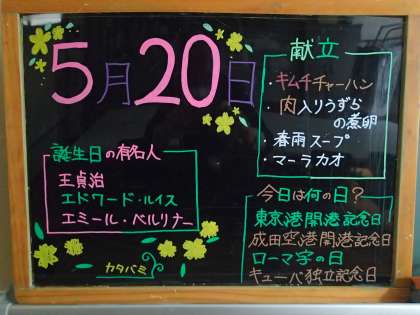 5月20日
献立
・キムチチャーハン
・肉入りうずら
の煮卵
・春雨スープ
・マーラカオ
誕生日の有名人
王貞治
エドワード・ルイス
エミール・ベルリナー
カタバミ
今日は何の日?
東京港開港記念日
成田空港開港記念日
ローマ字の日
キューバ独立記念日